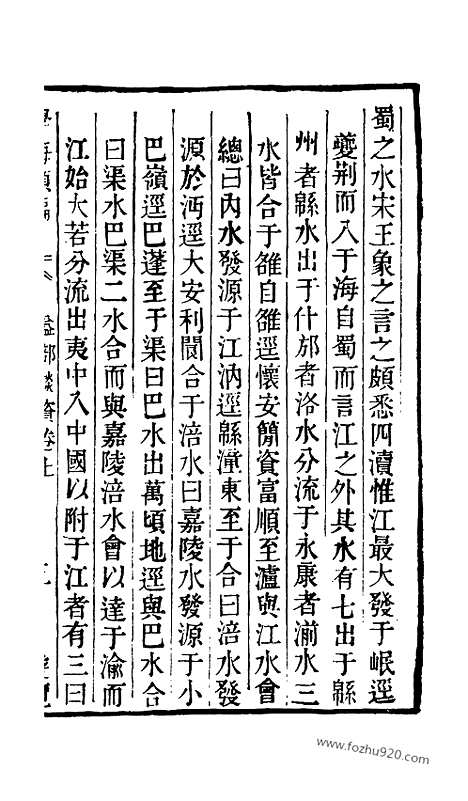 蜀之水宋王象之言之頗悉四瀆惟江最大發于岷逕
夔荆而入于海自蜀而言江之外其水有七出于緜
州者緜水出于什邡者洛水分流于永康者湔水三
水皆合于雒自雒逕懷安簡資富順至瀘與江水會
總曰內水發源于江汭逕緜潼東至于合曰涪水發
源於沔逕大安利閬合于涪水曰嘉陵水發源于小
巴嶺逕巴蓬至于渠曰巴水出萬頃地逕與巴水合
曰渠水巴渠二水合而與嘉陵涪水會以達于渝而
江始大若分流出夷中入中國以附于江者有三曰
益部談資卷上
www.fozhu920.com